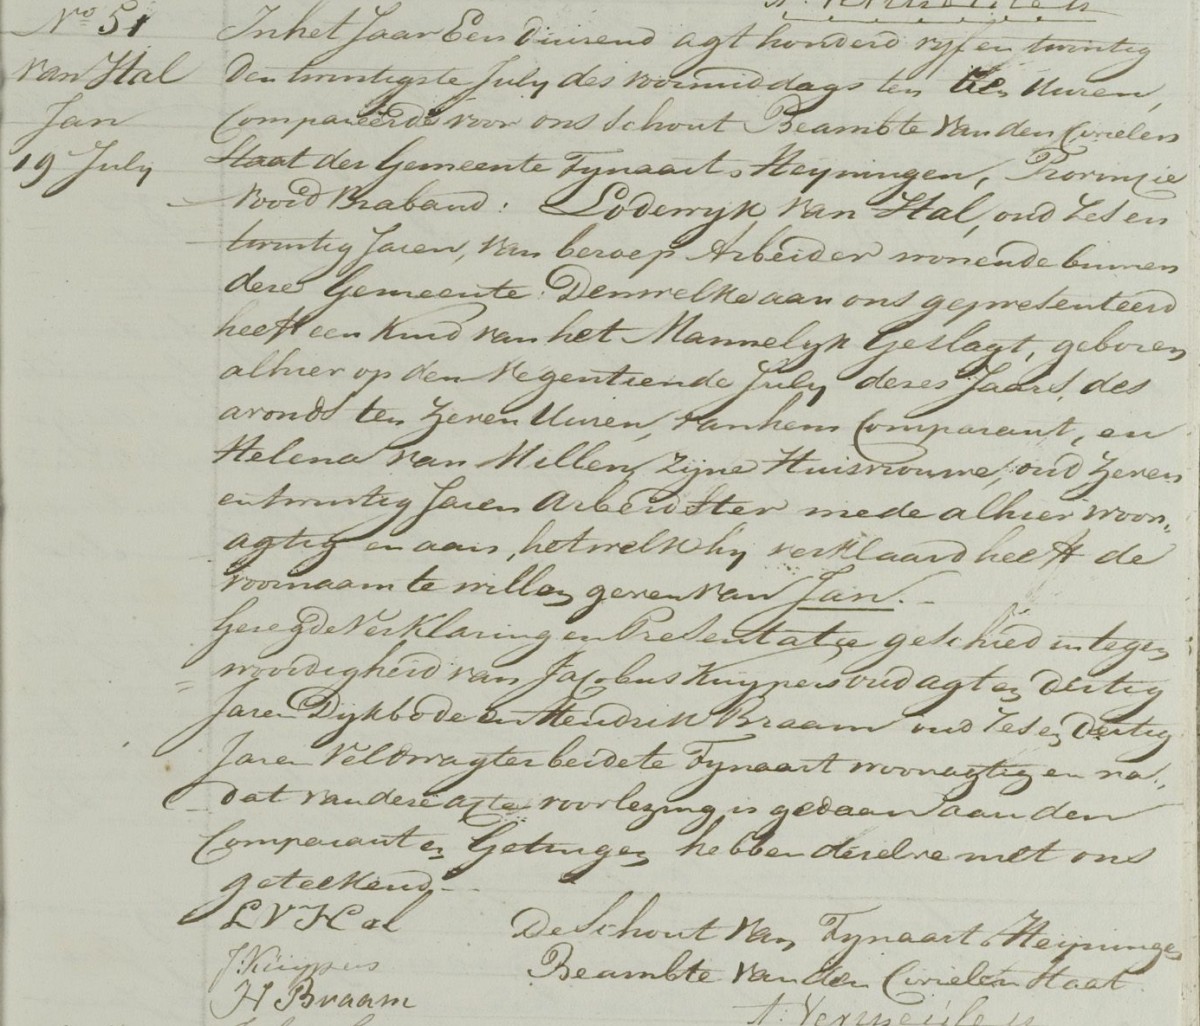 A. Vermeulen
No 51
van Hal
Jan
19 July
In het Jaar Een duizend agt honderd vyf en twintig
den twintigste July des voormiddags ten tien Uuren,
Compareerde voor ons Schout Beambte van den Civielen
Staat der Gemeente Fynaart & Heyningen, Provinzie
Noord Braband: Lodewyk van Hal, oud Zes en
twintig Jaren, van beroep Arbeider wonende binnen
dese Gemeente. Denwelke aan ons gepresenteerd
heeft een Kind van het Mannelyk Geslagt, geboren
alhier op den Negentiende July deses Jaars, des
avonds ten Zeven Uuren, van hem Comparant, en
Helena van Millen, Zijne Huisvrouwe, oud Zeven
en twintig Jaren Arbeidster mede alhier woon„
agtig en aan hetwelk hy verklaard heeft de
voornaam te willen geven van Jan.
Gezegde Verklaring en Presentatie geschied in tegen
woordigheid van Jacobus Kuypers oud agt en Dertig
Jaren Dykbode en Hendrik Braam oud Zes en Dertig
Jaren Veldwagter beide te Fynaart woonagtig en na„
dat van dese acte voorlezing is gedaan aan den
Comparant en Getuigen hebben deselve met ons
geteekend.
L V Hal
De Schout van Fynaart & Heyningen
J. Kuypers
Beambte van den Civielen Staat
H Braam
A. Vermeulen